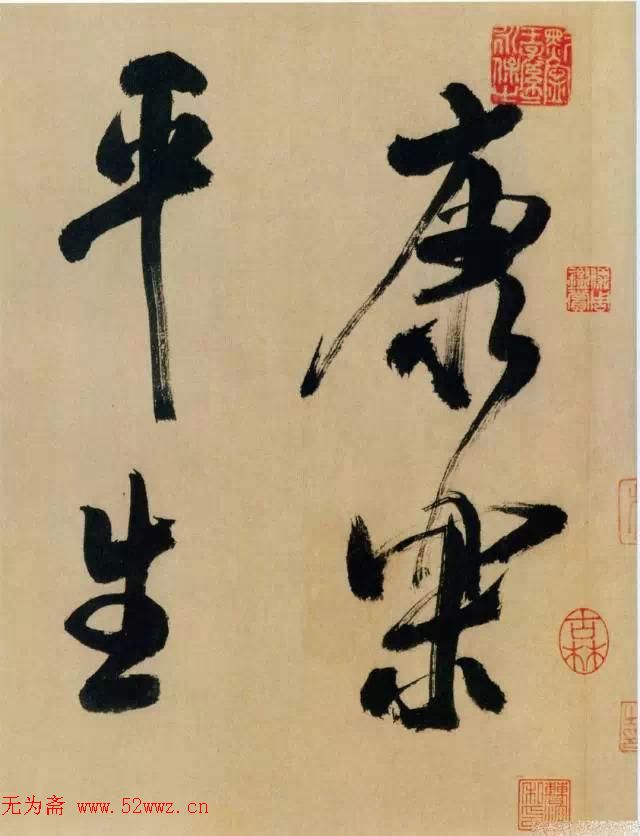 康樂
平生
无为斋 www.52wwz.cn